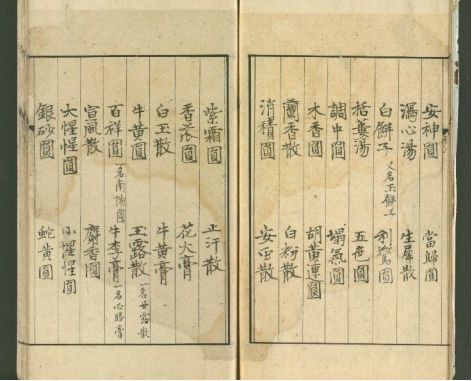 安神圓 當歸圓
瀉心湯 生犀散
白餅子 又名玉餅子 利驚圓
括蔞湯 五色圓
調中圓 塌氣圓
木香圓 胡黃連圓
蘭香散 白粉散
消積圓 安虫散
紫霜圓 止汗散
香瓜圓 花火膏
白玉散 牛黃膏
牛黃圓 玉露散 一名甘露散
百祥圓 一名南陽圓 牛李膏 一名必勝膏
宣風散 麝香圓
大惺惺圓 小惺惺圓
銀砂圓 蛇黃圓